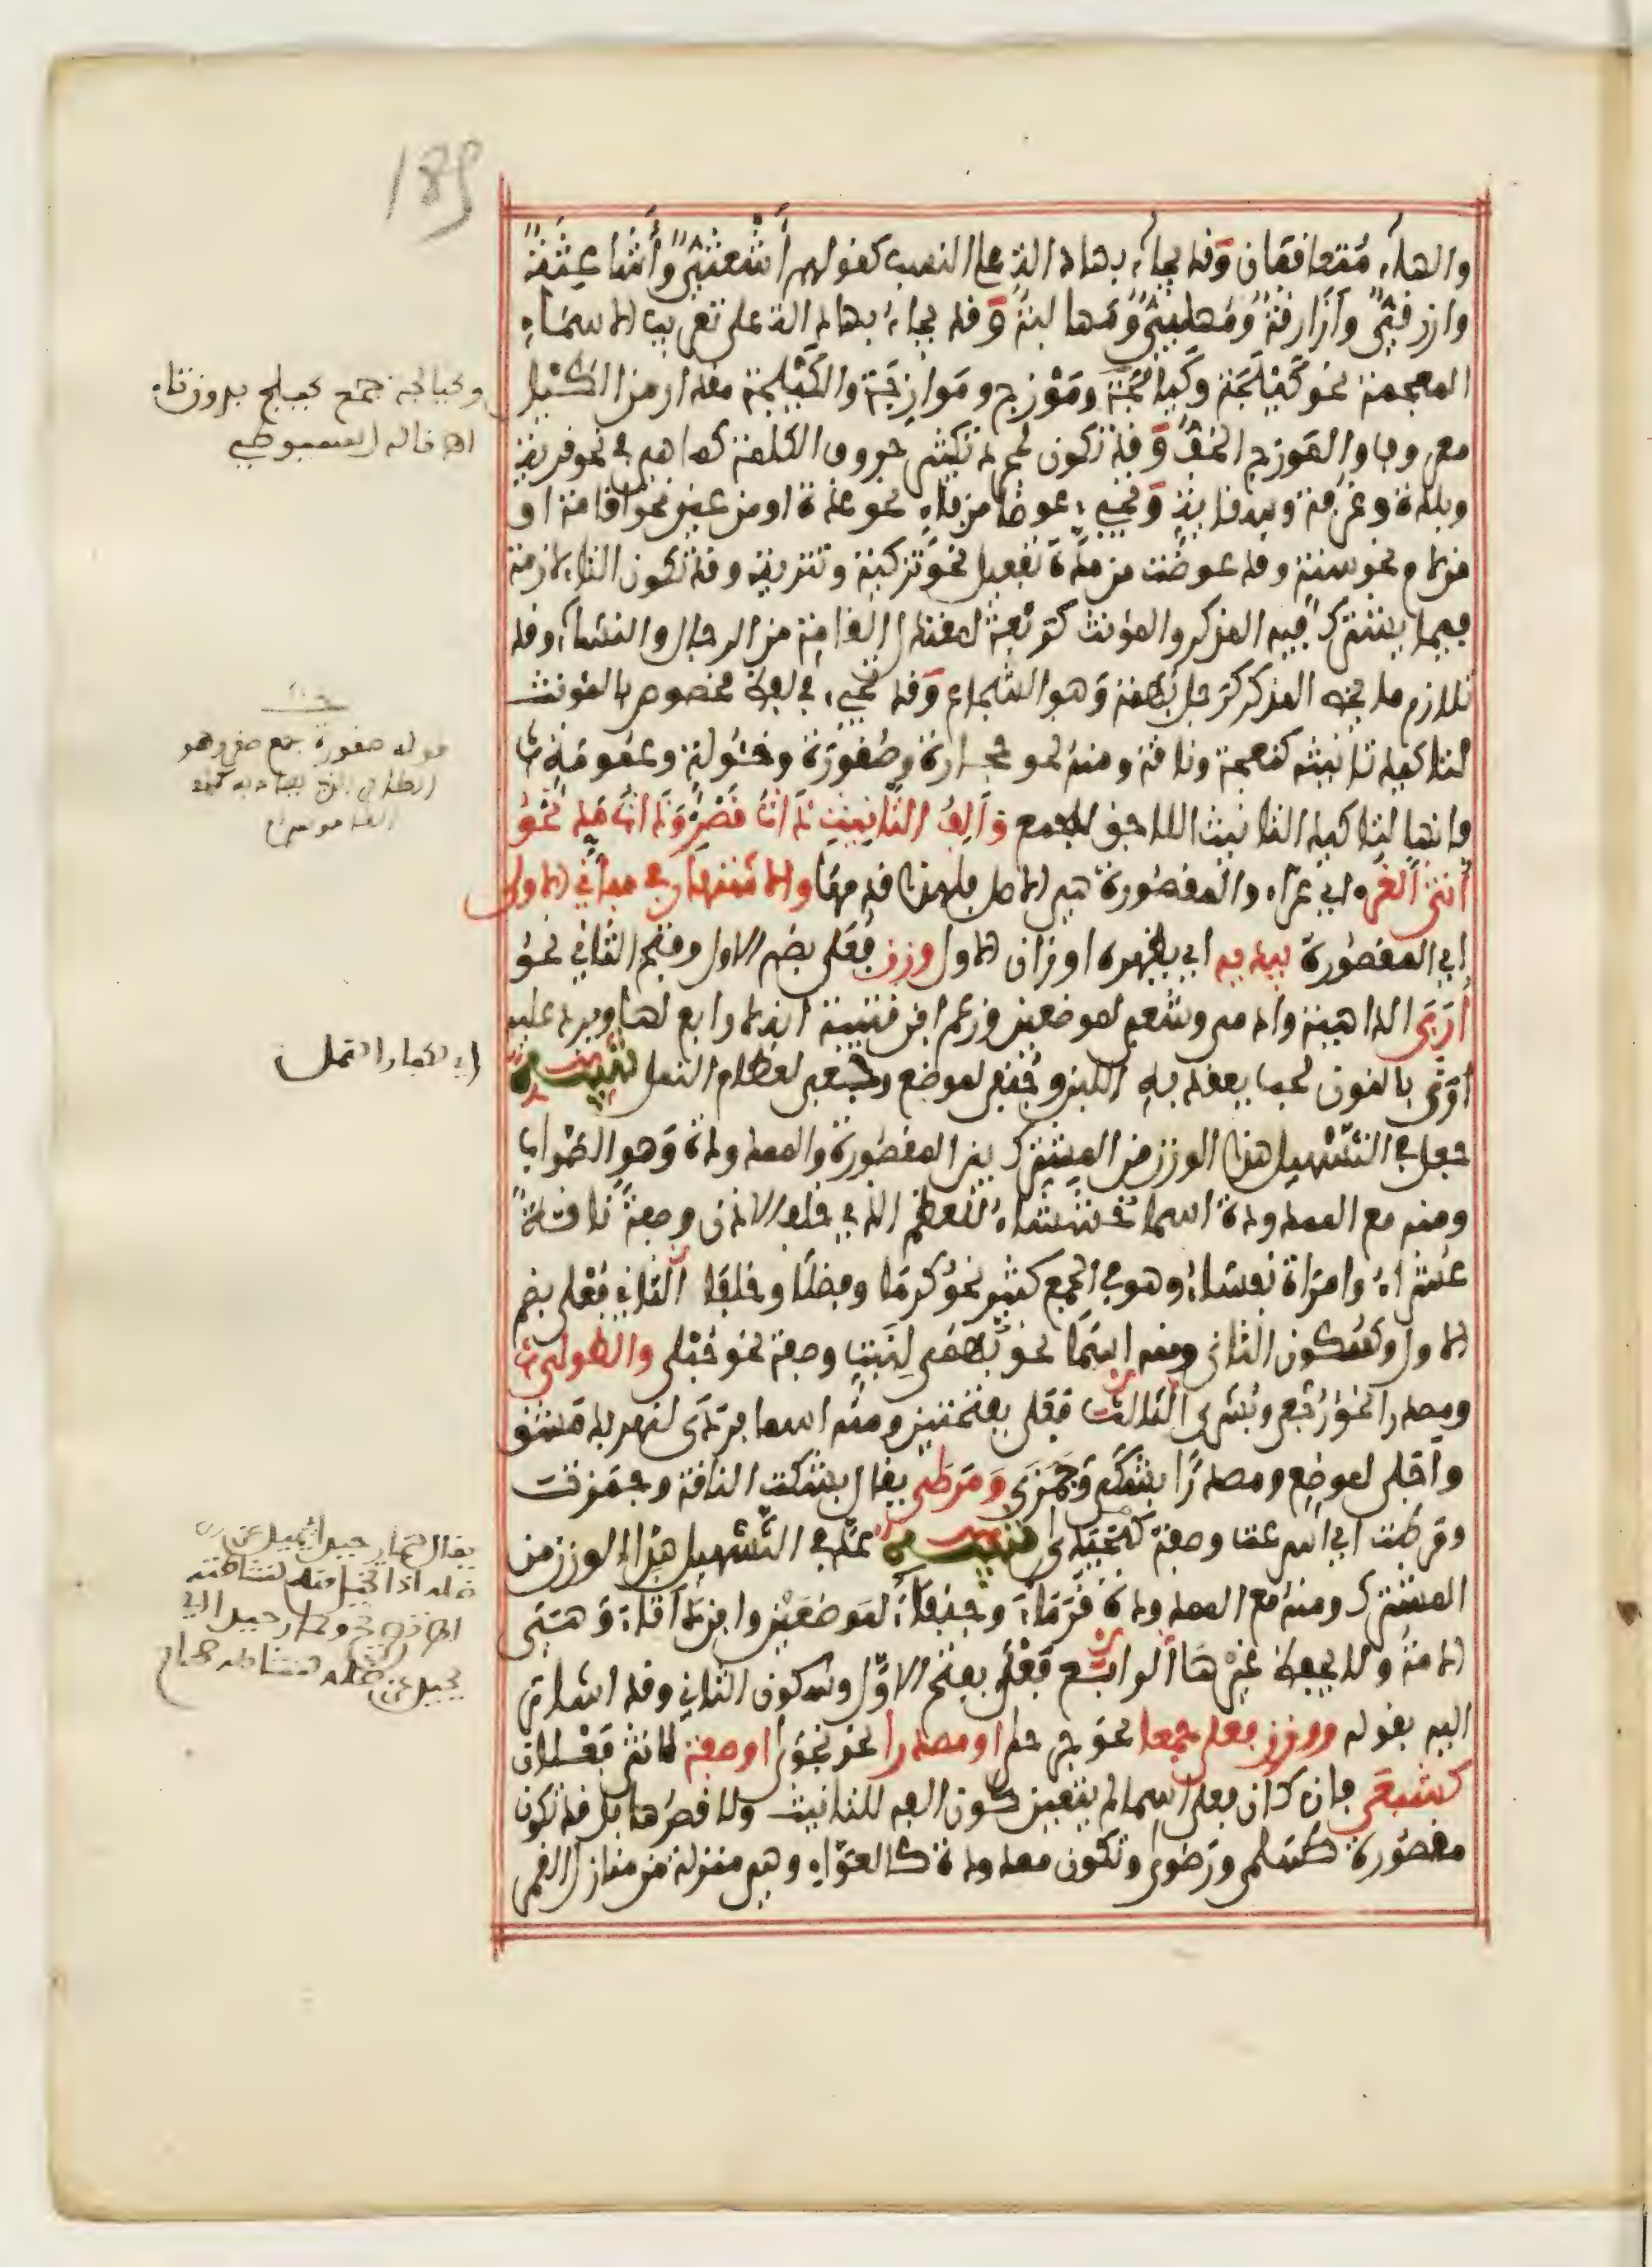 189
والهاء متعاقبان وقد يجاء بها دالة على النسب كقولهم أشعثي وأشاعثة
وازرقي وأزارقة ومهلبي ومهالبة وقد يجاء بها دالة على تعريب الاسماء
المعجمة نحو كيلجة وكيالجة وموزج وموازجة والكيلجة مقدار من الكيل
معروف والموزج الخف وقد تكون لمجرد تكثير حروف الكلمة كما هي في نحو قرية
وبلدة وغرفة وسقاية وتجيء عوضا من فاء نحو عدة او من عين نحو اقامة او
من لام نحو سنة وقد عوضت من مدة تفعيل نحو تزكية وتنزية وقد تكون التاء لازمة
فيما يشترك فيه المذكر والمؤنث كربعة لمعتدل القامة من الرجال والنساء وقد
تلازم ما يخص المذكر كرجل بهمة وهو الشجاع وقد تجيء في لفظ مخصوص بالمؤنث
لتاكيد تانيثه كنعجة وناقة ومنه نحو حجارة وصقورة وخئولة وعمومة
فانها لتاكيد التانيث اللاحق للجمع وألف التأنيث ذات قصر وذات مد نحو
أنثى الغر اي غراء والمقصورة هي الاصل فلهذا قدمها والاشتهار في مباني الاولى
اي المقصورة يبديه اي يظهره اوزان الاول وزن فعلى بضم الاول وفتح الثاني نحو
أربى الداهية وادمى وشعبى لموضعين وزعم ابن قتيبة انه لا رابع لها ويرد عليه
أرنى بالنون لحب يعقد به اللبن وجنفى لموضع وجعبى لعظام النمل تنبيه
جعل في التسهيل هذا الوزن من المشترك بين المقصورة والممدودة وهو الصواب
ومنه مع الممدودة اسما خششاء للعظم الذي خلف الاذن وصفة ناقة
عشراء وامراة نفساء وهو في الجمع كثير نحو كرما وفضلا وخلفا الثاني فعلى بضم
الاول وسكون الثاني ومنه اسما نحو بهمى لنبت وصفة نحو حبلى والطولى
ومصدرا نحو رجعى وبشرى الثالث فعلى بفتحتين ومنه اسما بردى لنهر بدمشق
وأجلى لموضع ومصدرا بشكى وجمزى ومرطى يقال بشكت الناقة وجمزت
ومرطت اي اسرعت وصفة كحيدى تنبيه عد في التسهيل هذا الوزن من
المشترك ومنه مع الممدودة قرماء وجنفاء لموضعين وابن دأثاء وهي
الامة ولا يحفظ غيرها الرابع فعلى بفتح الاول وسكون الثاني وقد اشار
اليه بقوله ووزن فعلى جمعا نحو جرحى او مصدرا نحو نجوى او صفة لانثى فعلان
كشبعى فان كان فعلى اسما لم يتعين كون الفه للتانيث ولا قصرها بل قد تكون
مقصورة كسلمى ورضوى وتكون ممدودة كالعواء وهي منزلة من منازل القمر
وكيالجة جمع كيلج بدون تاء
اهـ قاله السيوطي
قوله صقورة جمع صقر وهو
الطائر الذي يصاد به
القاموس
اي الكبار النمل
يقال حمار حيدا يحيد عن
ظله اذا تخيل منه لنشاطه
حمار حيدى اي
يحيد عن ظله لنشاطه